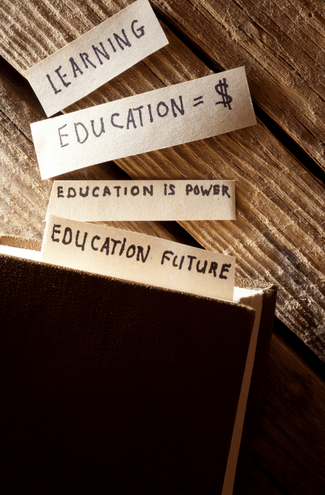 LEARNING
EDUCATION = $
EDUCATION IS POWER
EDUCATION FUTURE